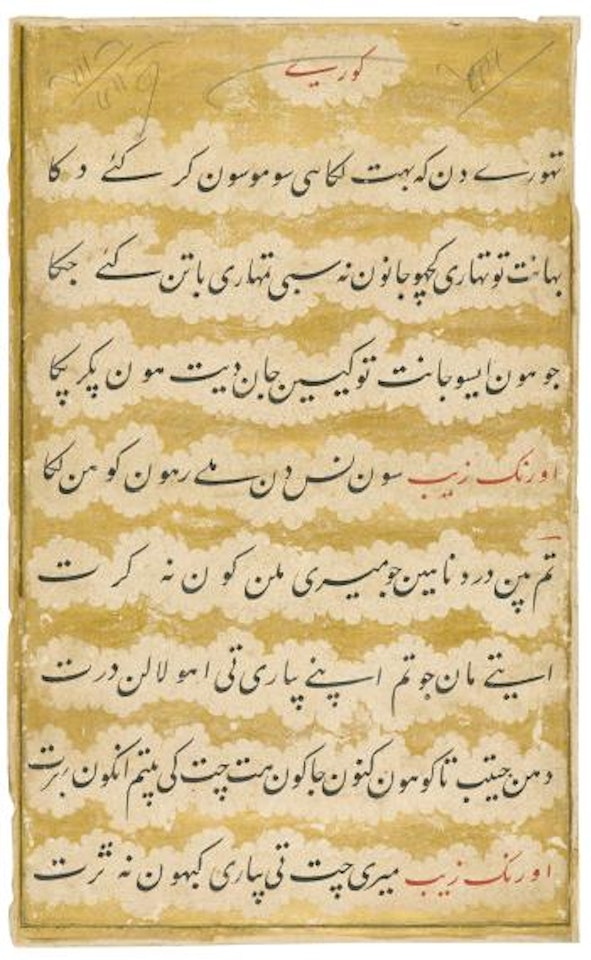 کوریے
تہورے دن کہ بہت لکا سی سو موسون کر کئے دکا
بہانت تو تہاری کچہو جانون نہ سبی تمہاری باتن کئے جکا
جو ہون ایسو جانت تو کیسین جان دیت ہون پکر پکا
اورنک زیب سون نس دن ملے رہون کو من لکا
تم مین درد ناہین جو میری ملن کون نہ کرت
ایتے مان جو تم اپنے پیاری تی اہو لالن درت
دہن جیتب تاکو ہون کنون جاکون ہت چت کی پیتم انکون برت
اورنک زیب میری چت تی پیاری کبہون نہ ٹرت